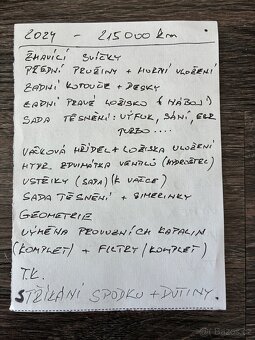 2024 - 215000 km
ŽHAVÍCÍ SVÍČKY
PŘEDNÍ PRUŽINY + HORNÍ ULOŽENÍ
ZADNÍ KOTOUČE + DESKY
ZADNÍ PRAVÉ LOŽISKO (NÁBOJ)
SADA TĚSNĚNÍ: VÝFUK, SÁNÍ, EGR
TURBO....
VAČKOVÁ HŘÍDEL + LOŽISKA ULOŽENÍ
HYDR. ZDVIHÁTKA VENTILŮ
VSTŘIKY (SADA) (K VAČCE)
SADA TĚSNĚNÍ + SIMERINKY
GEOMETRIE
VÝMĚNA PROVOZNÍCH KAPALIN
(KOMPLET) + FILTRY (KOMPLET)
T.K.
STŘÍKÁNÍ SPODKU + DUTINY.